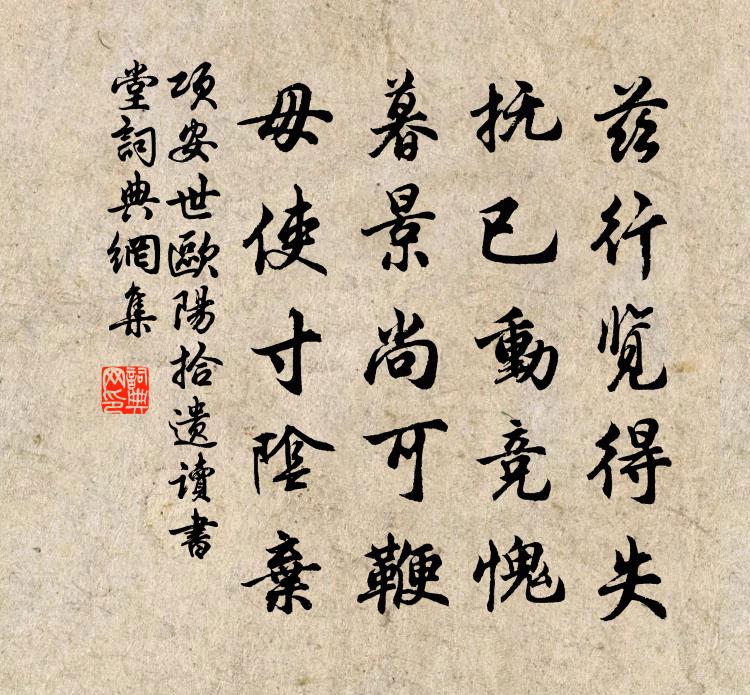 茲行覽得失
撫已動競愧
暮景尚可鞭
毋使寸陰棄
項安世歐陽拾遺讀書
堂詞典網集
詞典網印